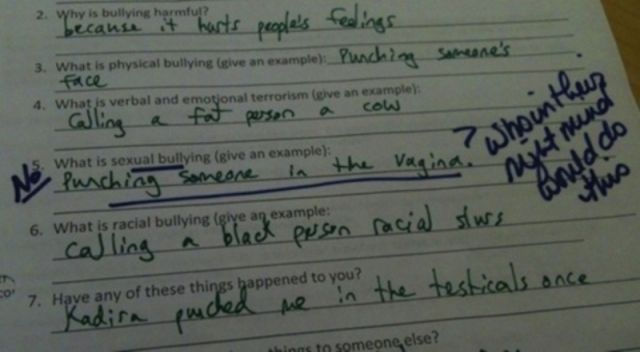 2. Why is bullying harmful?
because it hurts people's feelings
3. What is physical bullying (give an example): Punching someone's
face
4. What is verbal and emotional terrorism (give an example):
Calling a fat person a cow
5. What is sexual bullying (give an example):
No Punching someone in the vagina. ? who in their
right mind
would do
this
6. What is racial bullying (give an example:
calling a black person racial slurs
7. Have any of these things happened to you?
Kadira punched me in the testicals once
things to someone else?